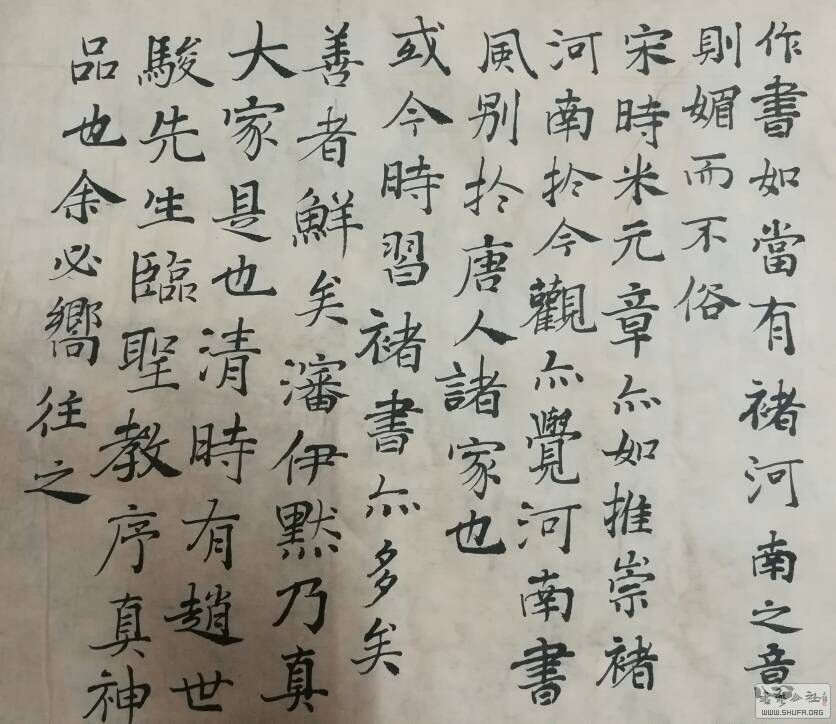 作書如當有褚河南之意
則媚而不俗
宋時米元章亦如推崇褚
河南於今觀亦覺河南書
風別於唐人諸家也
或今時習褚書亦多矣
善者鮮矣瀋伊默乃真
大家是也清時有趙世
駿先生臨聖教序真神
品也余必嚮往之
書法公社
WWW.SHUFA.ORG